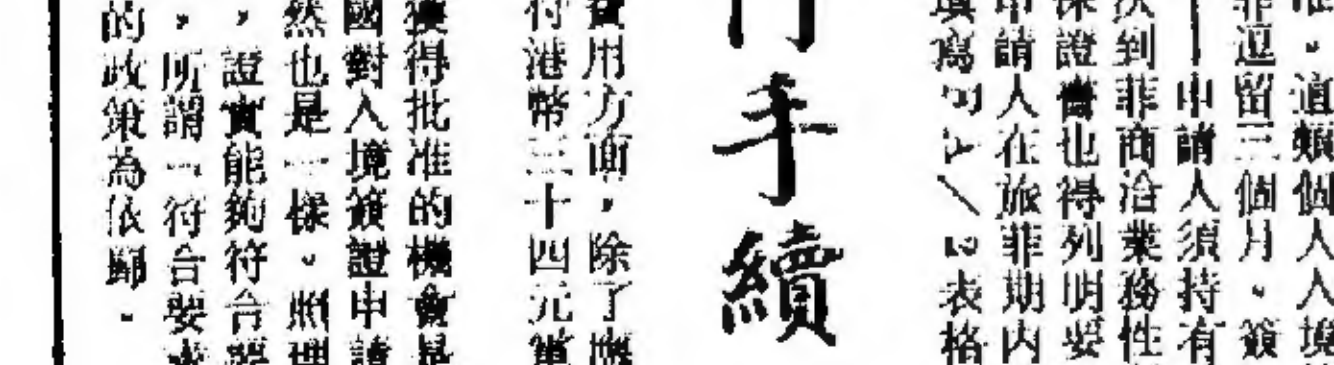 准。這類個人入境
菲逗留三個月。簽
申請人須持有
次到菲商洽業務性
保證書也得列明要
申請人在旅菲期内
填寫
表格
手續
費用方面,除了應
付港幣三十四元
獲得批准的機會是
國對入境簽證申請
然也是一樣。照理
,證實能夠符合
,所謂「符合要求
的政策為依歸。